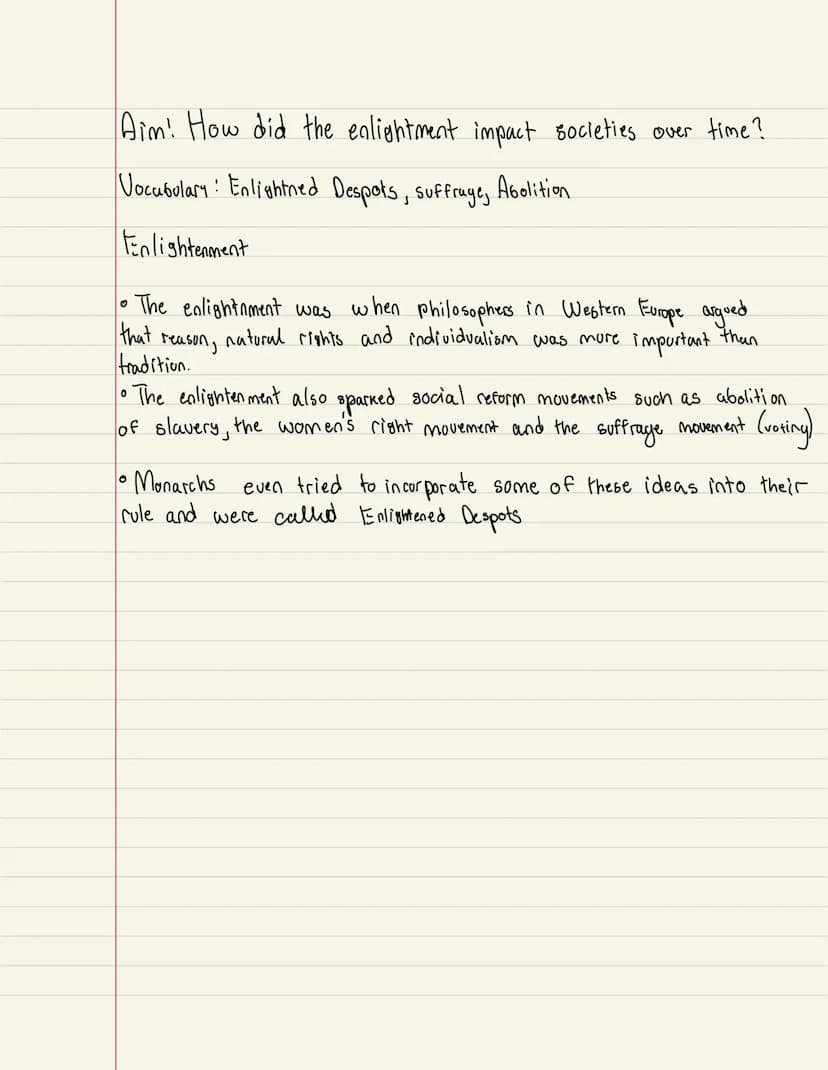 Aim! How did the enlightment impact societies over time?
Vocabulary: Enlightned Despots, suffrage, Abolition
Enlightenment
• The enlightnment was when philosophers in Western Europe argued
that reason, natural rights and individualism was more important than
tradition.
• The enlightenment also sparked social reform movements such as abolition
of slavery, the women's right movement and the suffrage movement (voting)
• Monarchs even tried to incorporate some of these ideas into their
rule and were called Enlightened Despots